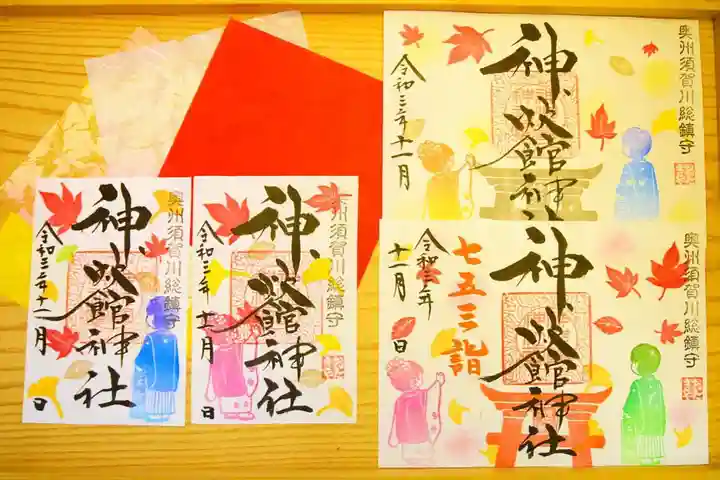 奥州須賀川総鎮守
神炊館神社
令和三年十一月
奥州須賀川総鎮守
神炊館神社
七五三詣
令和三年
十一月 日
奥州須賀川総鎮守
神炊館神社
令和三年十一月 日
奥州須賀川総鎮守
神炊館神社
令和三年十一月 日